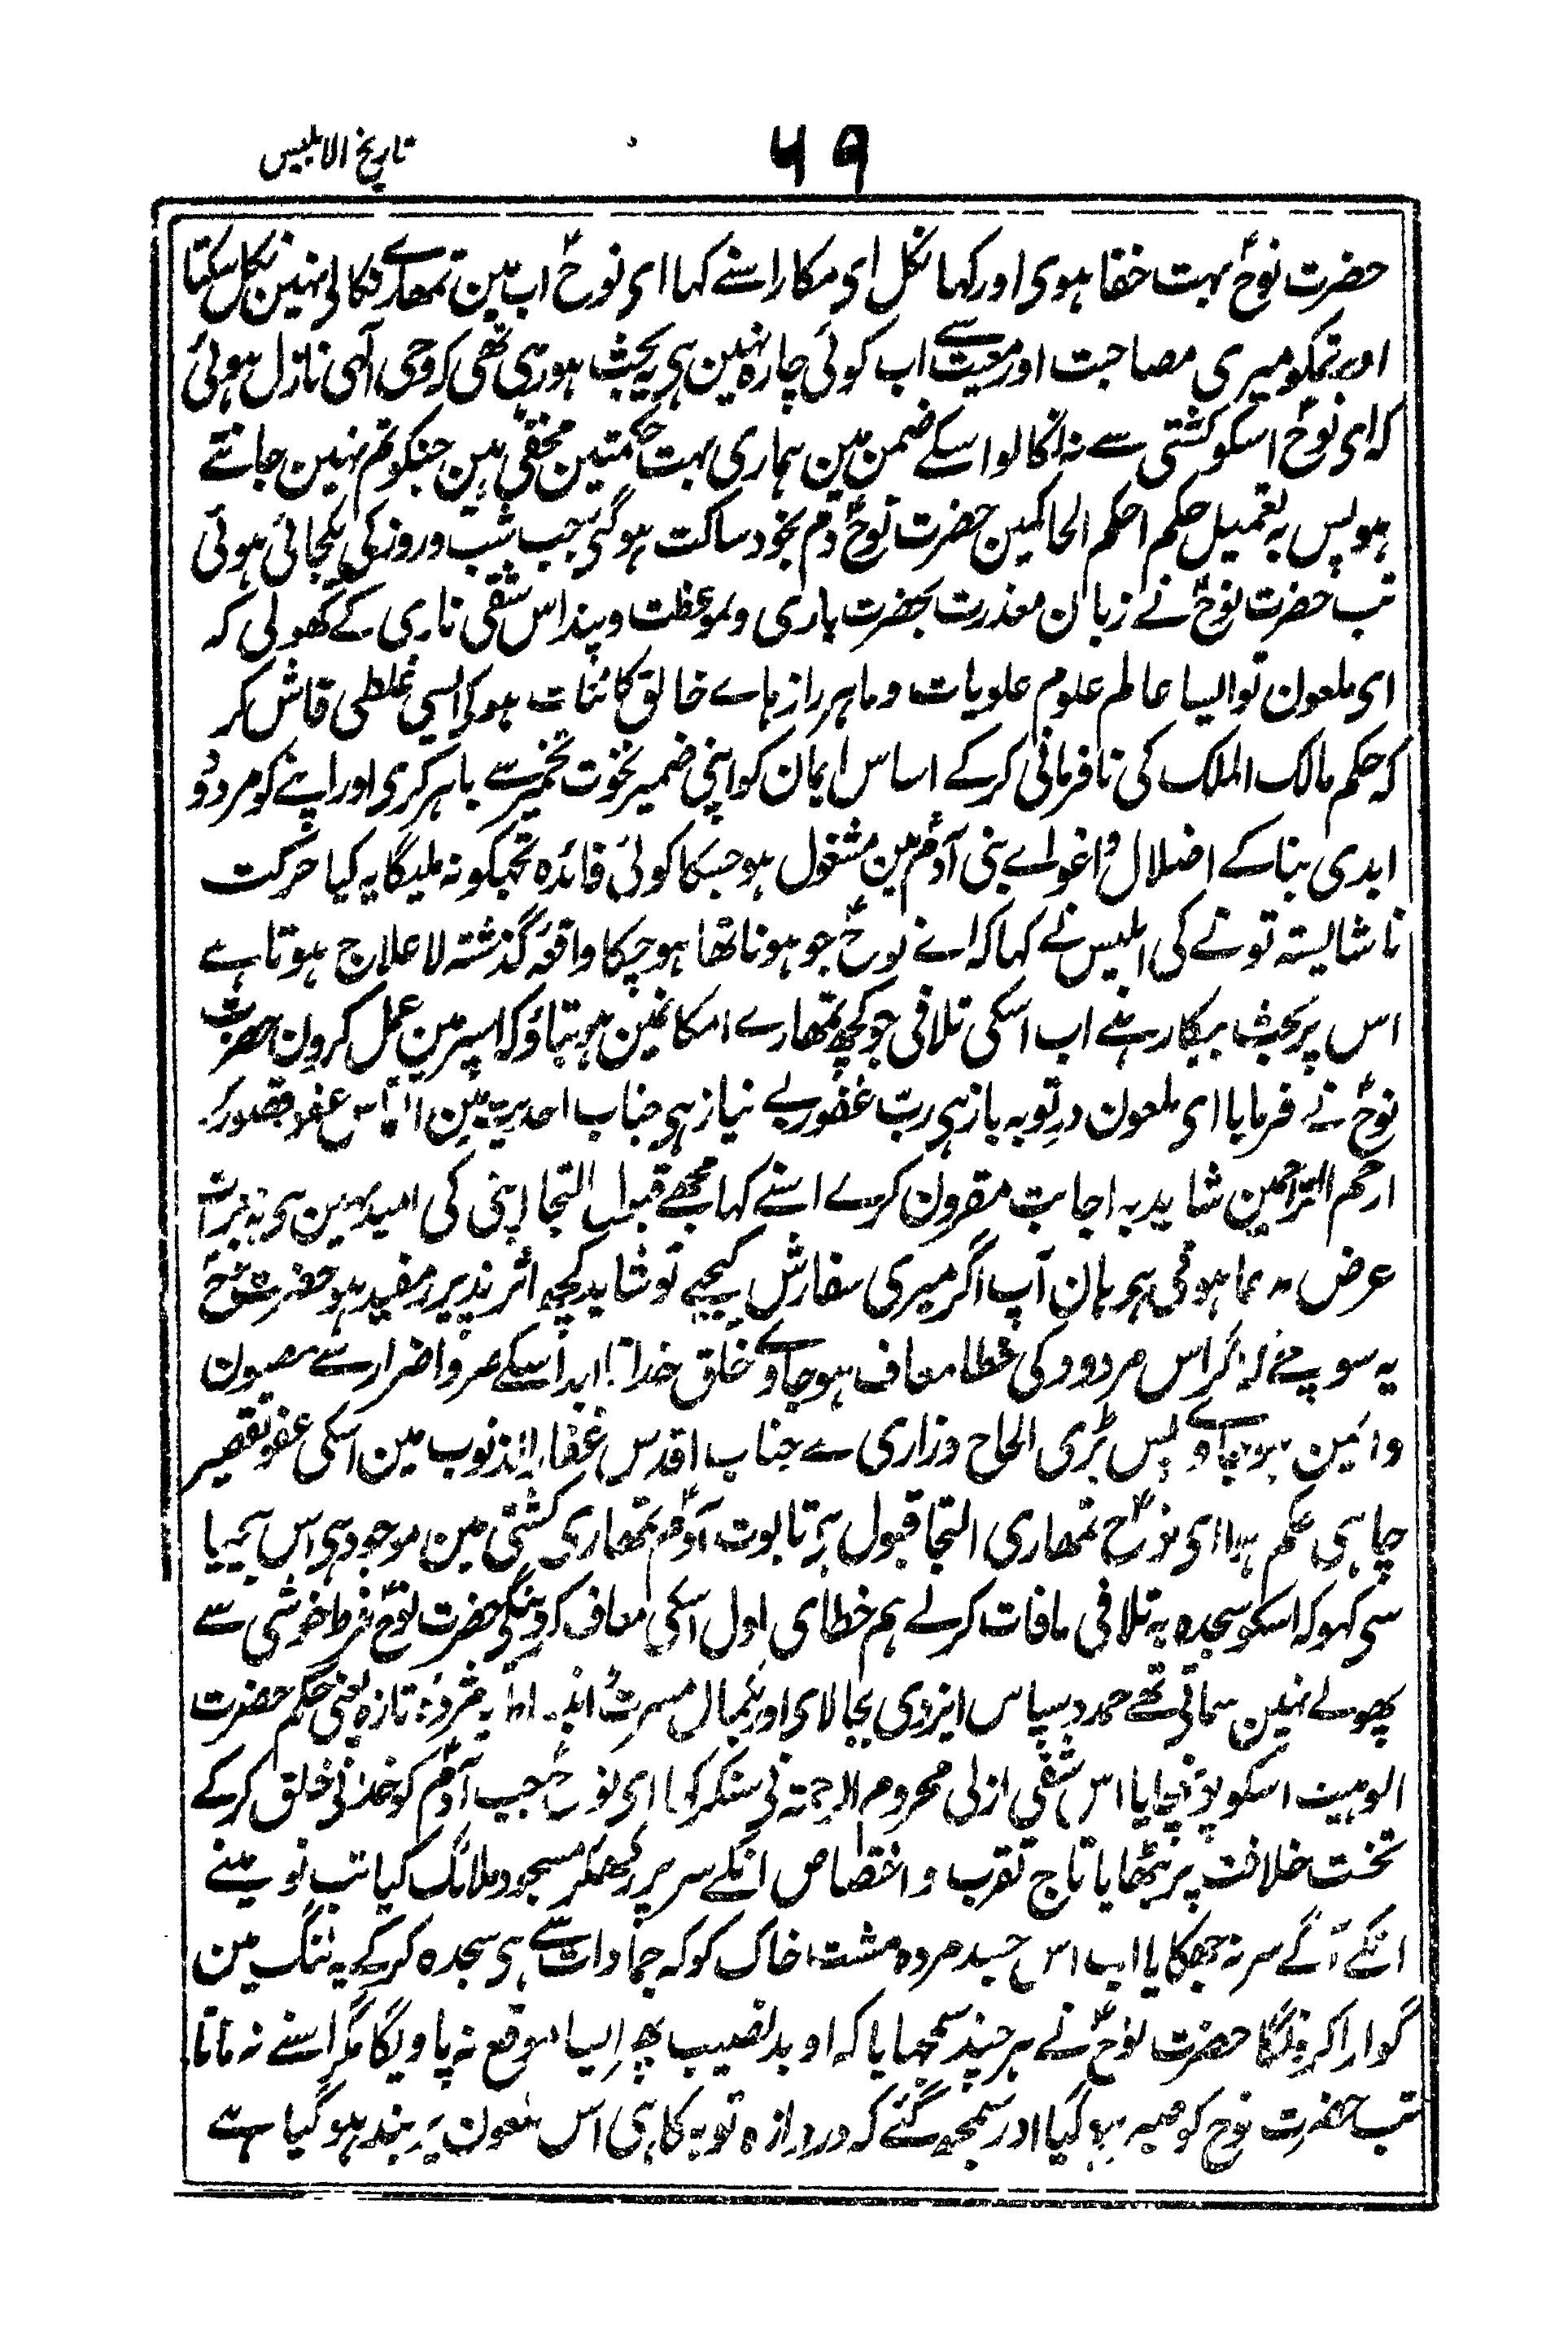 ۶۹ تاریخ الابلیس
حضرت نوحؑ بہت خفا ہوی اور کہا نکل ای مکار اسنے کہا ای نوحؑ اب مین تمھارے نکالی نہین نکل سکتا
اور تمکو میری مصاحبت اور معیت سے اب کوئی چارہ نہین ہی یہ بحث ہو رہی تھی کہ وحی آلٰہی نازل ہوئی
کہ ای نوحؑ اسکو کشتی سے نہ نکالو اسکے ضمن مین ہماری بہت حکمتین مخفی ہین جنکو تم نہین جانتے
ہو پس بہ تعمیل حکم احکم الحاکمین حضرت نوحؑ دم بخود ساکت ہو گئی جب شب و روز کی یکجائی ہوئی
تب حضرت نوحؑ نے زبان معذرت بحضرت باری و بموعظت و پند اس شقی ناری کے کھولی کہ
ای ملعون تو ایسا عالم علوم علویات و ماہر راز ہاے خالق کائنات ہو کر ایسی غلطی فاش کر
کہ حکم مالک الملک کی نافرمانی کر کے اساس ایمان کو اپنی ضمیر نخوت تخمیر سے باہر کری اور اپنے کو مردود
ابدی بنا کے اضلال و اغواے بنی آدمؑ مین مشغول ہو جسکا کوئی فائدہ تجھکو نہ ملیگا یہ کیا حرکت
ناشایستہ تو نے کی ابلیس نے کہا کہ اے نوحؑ جو ہونا تھا ہو چکا واقعۂ گذشتہ لا علاج ہوتا ہے
اس پر بحث بیکار ہے اب اسکی تلافی جو کچھ تمھارے امکانمین ہو بتاؤ کہ اسپر مین عمل کرون حضرت
نوحؑ نے فرمایا ای ملعون در توبہ باز ہی ربّ غفور بے نیاز ہی جناب احدیت مین التماس عفو قصور کر
ارحم الراحمین شاید بہ اجابت مقرون کرے اسنے کہا مجھے قبول التجا اپنی کی امید نہین ہی نہ جرأت
عرض مدعا ہوتی ہی ہان آپ اگر میری سفارش کیجیے تو شاید کچھ اثر پذیر و مفید ہو حضرت نوحؑ
یہ سوچے کہ اگر اس مردود کی خطا معاف ہو جاوے خلق خدا ایذا اسکے ضر و اضرار سے مصون
و ائمین ہو جاوے پس بڑی الحاح و زاری سے جناب اقدس غفار الذنوب مین اسکی عفو تقصیر
چاہی حکم ہوا ای نوحؑ تمھاری التجا قبول ہی تابوت آدمؑ تمھاری کشتی مین موجود ہی اس بیحیا
سی کہو کہ اسکو سجدہ بہ تلافی مافات کرلے ہم خطای اول اسکی معاف کر دینگی حضرت نوحؑ فرط خوشی سے
پھولے نہین سماتی تھے حمد و سپاس ایزدی بجا لای اور بکمال مسرت یہ مژدۂ تازہ یعنی حکم حضرت
الوہیت اسکو پہونچایا اس شقی ازلی محروم الرحمتہ نی سنکر کہا ای نوحؑ جب آدمؑ کو خدا نی خلق کر کے
تخت خلافت پر بٹھایا تاج تقرب و اختصاص انکے سر پر رکھکر مسجود ملائک کیا تب تو مینے
انکے آگے سر نہ جھکایا اب اس جسد مردہ مشت خاک کو کہ جمادات سے ہی سجدہ کر کے یہ ننگ مین
گوارا کرونگا حضرت نوحؑ نے ہر چند سمجھایا کہ او بد نصیب پھر ایسا موقع نہ پاویگا مگر اسنے نہ مانا
تب حضرت نوح کو ہو گیا اور سمجھ گئے کہ دروازہ توبہ کا ہی اس ملعون پر بند ہو گیا ہے